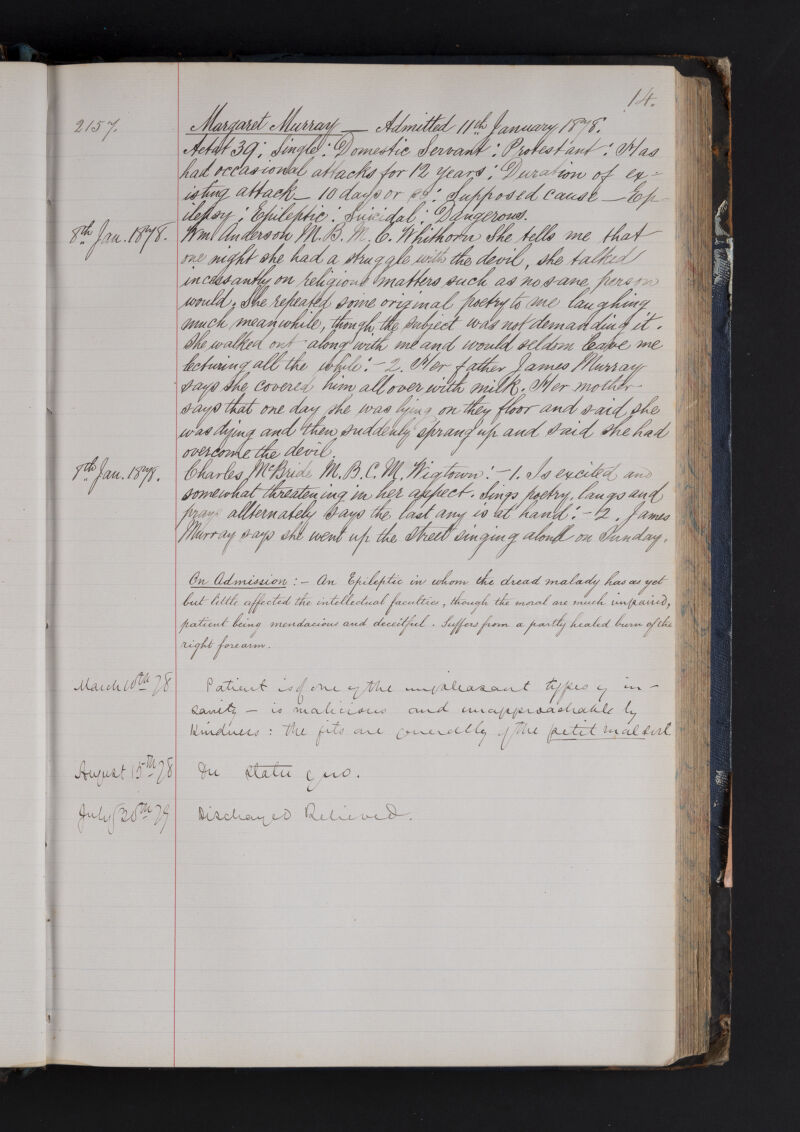 14.
2157. Margaret Murray — Admitted 11th January 1878.
Aetat 39: Single: Domestic Servant: Protestant: Has
had occasional attacks for 12 years: Duration of ex-
isting attack — 10 days or so: Supposed cause — Ep-
ilepsy; Epileptic: Suicidal: Dangerous.
8th Jan. 1878. Wm Anderson M.B. M.C. Whithorn She tells me that
one night she had a struggle with the devil, she talked
incessantly on religious matters such as no sane person
would; She repeated some original poetry to me laughing
much meanwhile, though the subject was not demanding it.
She walked out along with me and would seldom leave me
lecturing all the while: - 2. Her father James Murray
says she covered him all over with milk. Her mother
says that one day she was lying on they floor and said she
was dying and then suddenly sprang up and said she had
overcome the devil.
8th Jan. 1878. Charles McBride M.B.C.M. Wigtown: - 1. Is excited and
somewhat threatening in her aspect. Sings poetry, laugs and
prays allternately says the last any is at hand: - 2. James
Murray says she went up the street singing aloud on Sunday.
On Admission: - An Epileptic in whom the dread malady has as yet
but little affected the intellectual faculties, though the moral are much impaired,
patient being mendacious and deceitful. Suffers from a partly healed burn of the
right forearm.
March 10th 78 Patient is of one of the unpleasant types of in-
sanity - is malicious and unapproachable by
kindness: the fits are generally of the petit mal sort
August 15th 78 In statu quo.
July 26th 79 Discharged Relieved.